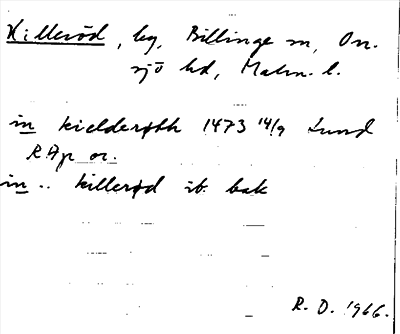 Killeröd, by, Billinge sn, On-
sjö hd, Malm. l.
in kielderøth 1473 14/9 Lund
RAp or.
in .. killerød ib. bak
R. O. 1966.